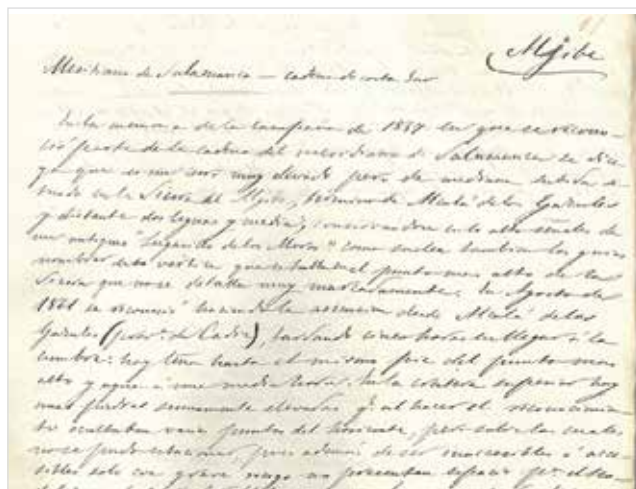 Mjibe
Meridiano de Salamanca — cadena de costa Sur
En la memoria de la campaña de 1857 en que se recono-
ció parte de la cadena del meridiano de Salamanca se di
ga que es un cerro muy elevado pero de mediana subida si-
tuado en la Sierra del Mjibe, término de Alcalá de los Gazules
y distante dos leguas y media, conservándose en lo alto señales de
un antiguo "Lugarcito de los Moros" como suelen tambien los guias
nombrar esta vértice que es el punto mas alto de la
Sierra que no se detalla muy marcadamente. En Agosto de
1861 se reconoció haciendo la ascension desde Alcalá de los
Gazules (prov.ª de Cadiz), tardando cinco horas en llegar á la
cumbre: hay leña hasta el mismo pie del punto mas
alto y agua á una media hora. En la superior hay
unas piedras sumamente elevadas q.e al hacer el reconocimien-
to ocultaban varios puntos del horizonte, pero sobre las cuales
no se pudo estacionar, pues además de ser inaccesibles ó acce-
sibles solo con grave riesgo no presentan espacio p.ª el